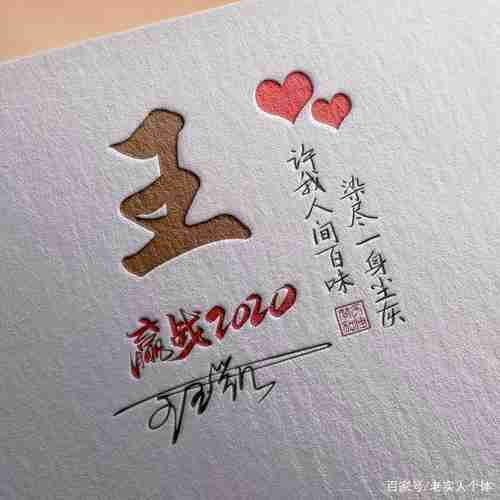 王
染尽一身尘灰
许我人间百味
赢战2020
百家号/老实人个体